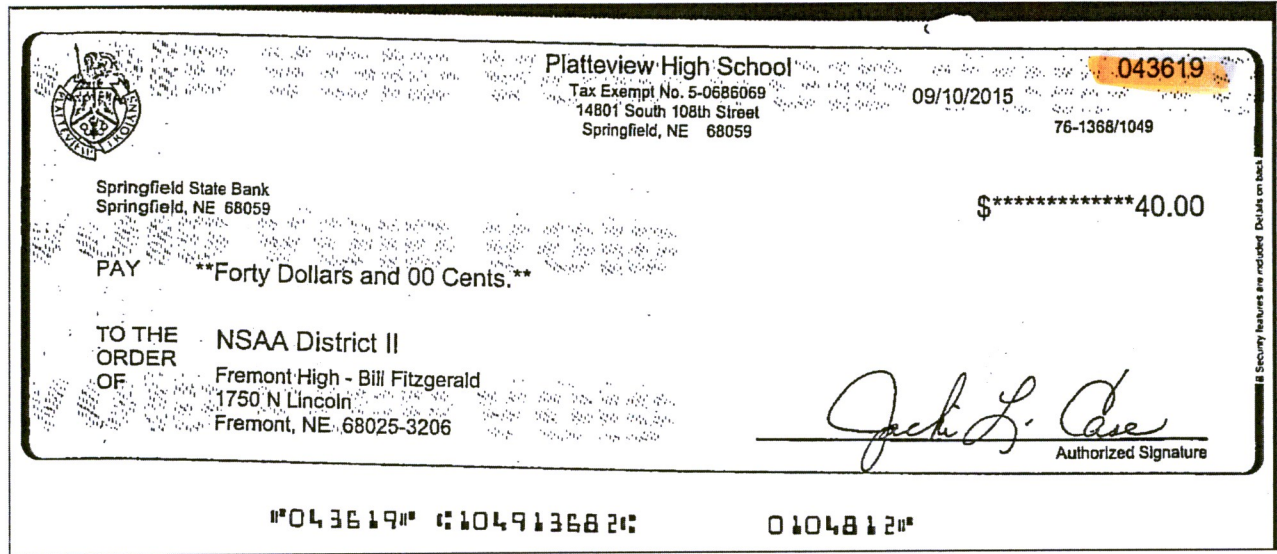 Platteview High School
Tax Exempt No. 5-0686069
14801 South 108th Street
Springfield, NE 68059
043619
09/10/2015
76-1368/1049
PLATTEVIEW TROJANS
Springfield State Bank
Springfield, NE 68059
$*************40.00
VOID VOID VOID
PAY **Forty Dollars and 00 Cents.**
TO THE
ORDER
OF
NSAA District II
Fremont High - Bill Fitzgerald
1750 N Lincoln
Fremont, NE 68025-3206
Jacki L. Case
Authorized Signature
Security features are included. Details on back
⑈043619⑈ ⑆104913682⑆ 0104812⑈